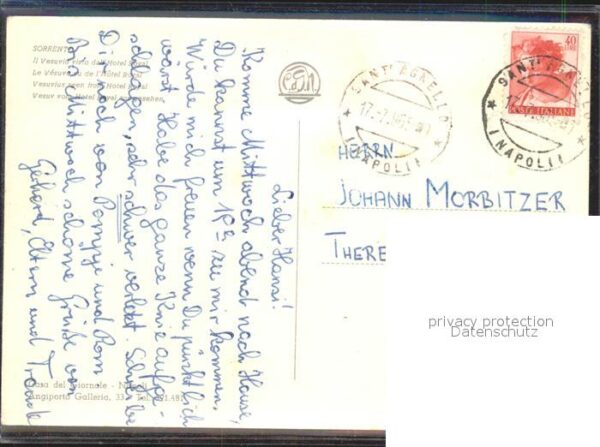 SORRENTO
Il Vesuvio visto dall'Hotel Royal
Le Vésuve vu de l'Hôtel Royal
Vesuvius seen from Hotel Royal
Vesuv vom Hotel Royal aus gesehen
Lieber Hansi!
Komme Mittwoch abend nach Hause,
Du kannst um 18 zu mir kommen.
Würde mich freuen wenn Du pünktlich
wärst. Habe das ganze Knie aufge-
schlagen, sehr schwer verletzt. Schreibe
Dir noch von Pompeje und Rom
Bis Mittwoch schöne Grüße von
Gerhard, Eltern und
Casa del Giornale - Napoli
Angiporto Galleria, 33 - Tel.
SANT'AGNELLO
17.
(NAPOLI)
40
LIRE
POSTE ITALIANE
SANT'AGNELLO
17.
(NAPOLI)
HERRN
JOHANN MORBITZER
THERE
privacy protection
Datenschutz